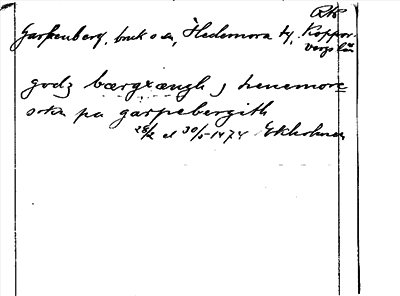 RK
Garpenberg, bruk o sn, Hedemora tg, Koppar-
bergs län
godz bærgxængh j henemore
sokn pa garpebergith
28/2 el 30/5-1474 Ekholmen